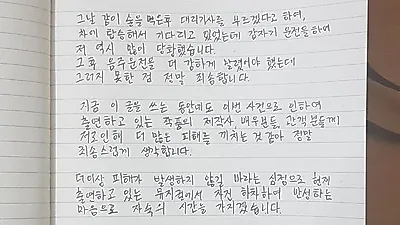 그날 같이 술을 먹은후 대리기사를 부르겠다고 하여,
차에 탑승해서 기다리고 있었는데 갑자기 운전을 하여
저 역시 많이 당황했습니다.
그후 음주운전을 더 강하게 말렸어야 했는데
그러지 못한 점 정말 죄송합니다.
지금 이 글을 쓰는 동안에도 이번 사건으로 인하여
출연하고 있는 작품의 제작사 배우분들, 관객분들께
저로인해 더 많은 피해를 끼치는 것 같아 정말
죄송스럽게 생각합니다.
더이상 피해가 발생하지 않길 바라는 심정으로 현재
출연하고 있는 뮤지컬에서 자진 하차하여 반성하는
마음으로 자숙의 시간을 가지겠습니다.